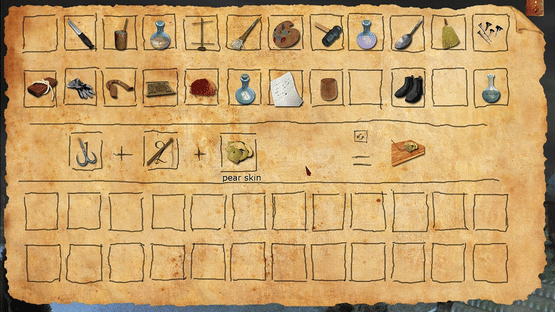 pear skin